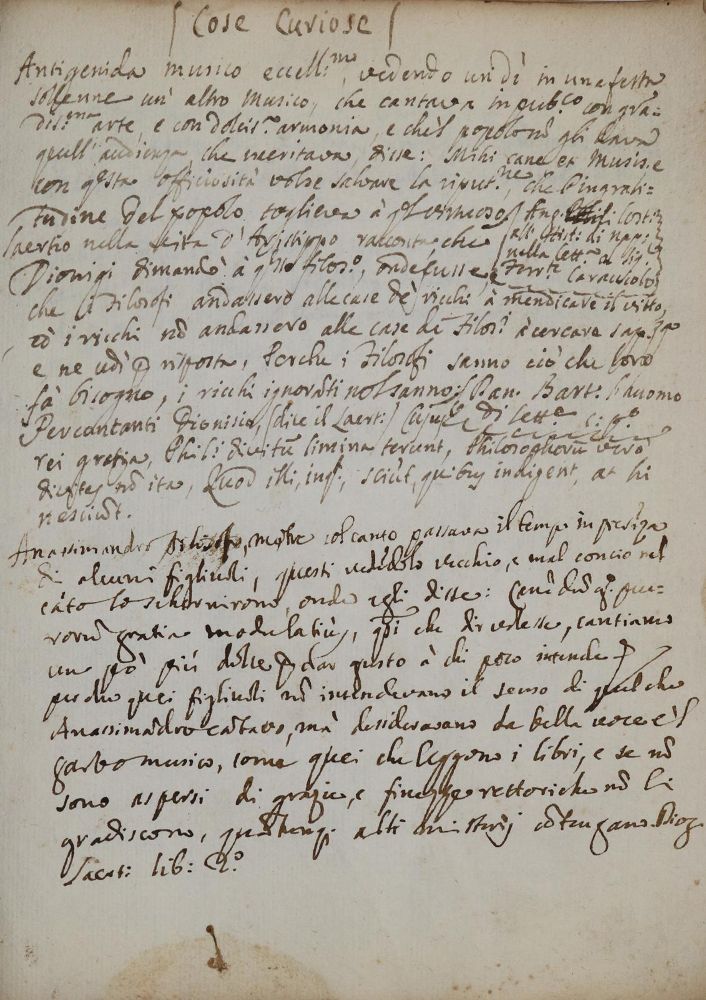 [Cose Curiose]
Antigenida musico eccell:mo, vedendo un dì in una festa
sollenne un' altro Musico, che cantava in pub:co con gra-
dis:ma arte, e con dolcis:a armonia, e ch'l popolo nõ gli dava
quell' audienza, che meritava, disse: Mihi cane et Musis, e
con q̃sta officiosità volse salvare la riput:ne, che l'ingrati-
tudine del popolo toglieva à q̃l virtuoso
laertio nella vita d' Aristippo racconta, che
all' Hist: di Nap:
nella lett:a al Sig:r
Dionigi dimandò à q̃sto filos:o, onde fusse, e
Ferr:te Caracciolo
che i Filosofi andassero alle case de' ricchi à mendicare il vitto,
et i ricchi nõ andassero alle case de' Filos:i à cercare sap:za
e ne udì p risposta, Perche i Filosofi sanno ciò che loro
fà bisogno, i ricchi ignorãti nol sanno: Bart:
Percontanti Dionisio, (dice il Laert:)
rei gratia, Phil:i divitũ limina terunt, Philosophorũ verò
divites nõ ita, Quod illi, inq:t, sciũt, quibus indigent, at hi
nesciũt.
Anassimandro filosofo, mẽtre col canto passava il tempo in presẽza
di alcuni figliuoli, questi vedẽdolo vecchio, e mal concio nel
cãto lo schernirono, onde egli disse:
rorũ gratia modulatius, q̃si che dir volesse, cantiamo
un pò più dolce p dar gusto à chi poco intende
perche quei figliuoli nõ intendevano il senso di quel che
Anassimãdro cãtava, mà desideravano la bella voce e'l
garbo musico, come quei che leggono i libri, e se nõ
sono aspersi di grazie, e finezze rettoriche nõ li
gradiscono, alti misterij cõtengano. Diog
Laert: lib: 2.o